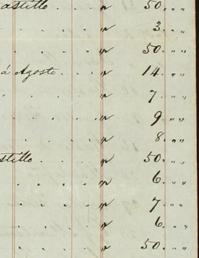 astillo . . . " 50. " "
. . . . " 3. " "
. . . . " 50. " "
á Agosto . . . " 14. " "
. . . . " 7. " "
. . . . " 9 " "
. . . . " 8. " "
stillo . . . " 50. " "
. . . . " 6. " "
. . . . " 7. " "
. . . . " 6. " "
. . . . " 50. " "